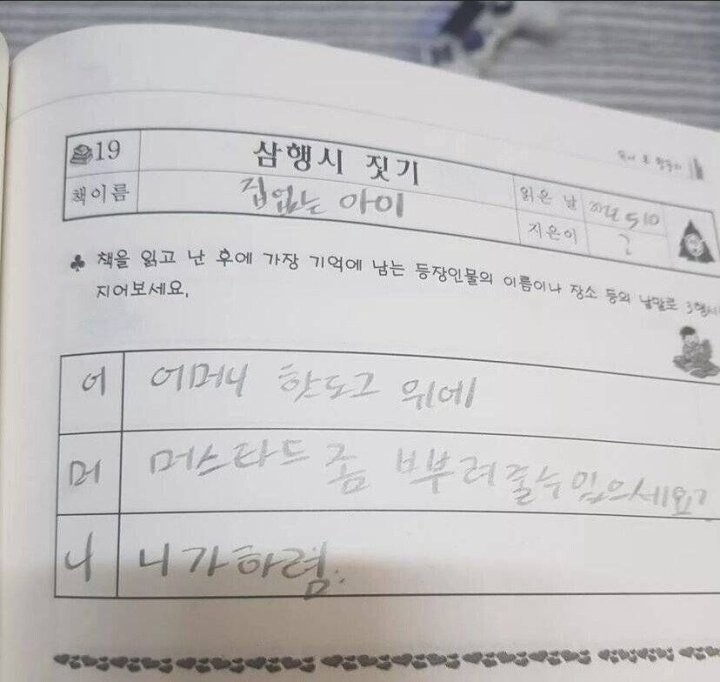 19 삼행시 짓기
책이름 집없는 아이 읽은 날
지은이 ?
♣ 책을 읽고 난 후에 가장 기억에 남는 등장인물의 이름이나 장소 등의 낱말로 3행시
지어보세요.
어 어머니 핫도그 위에
머 머스타드 좀 뿌려줄수있으세요?
니 니가하렴.